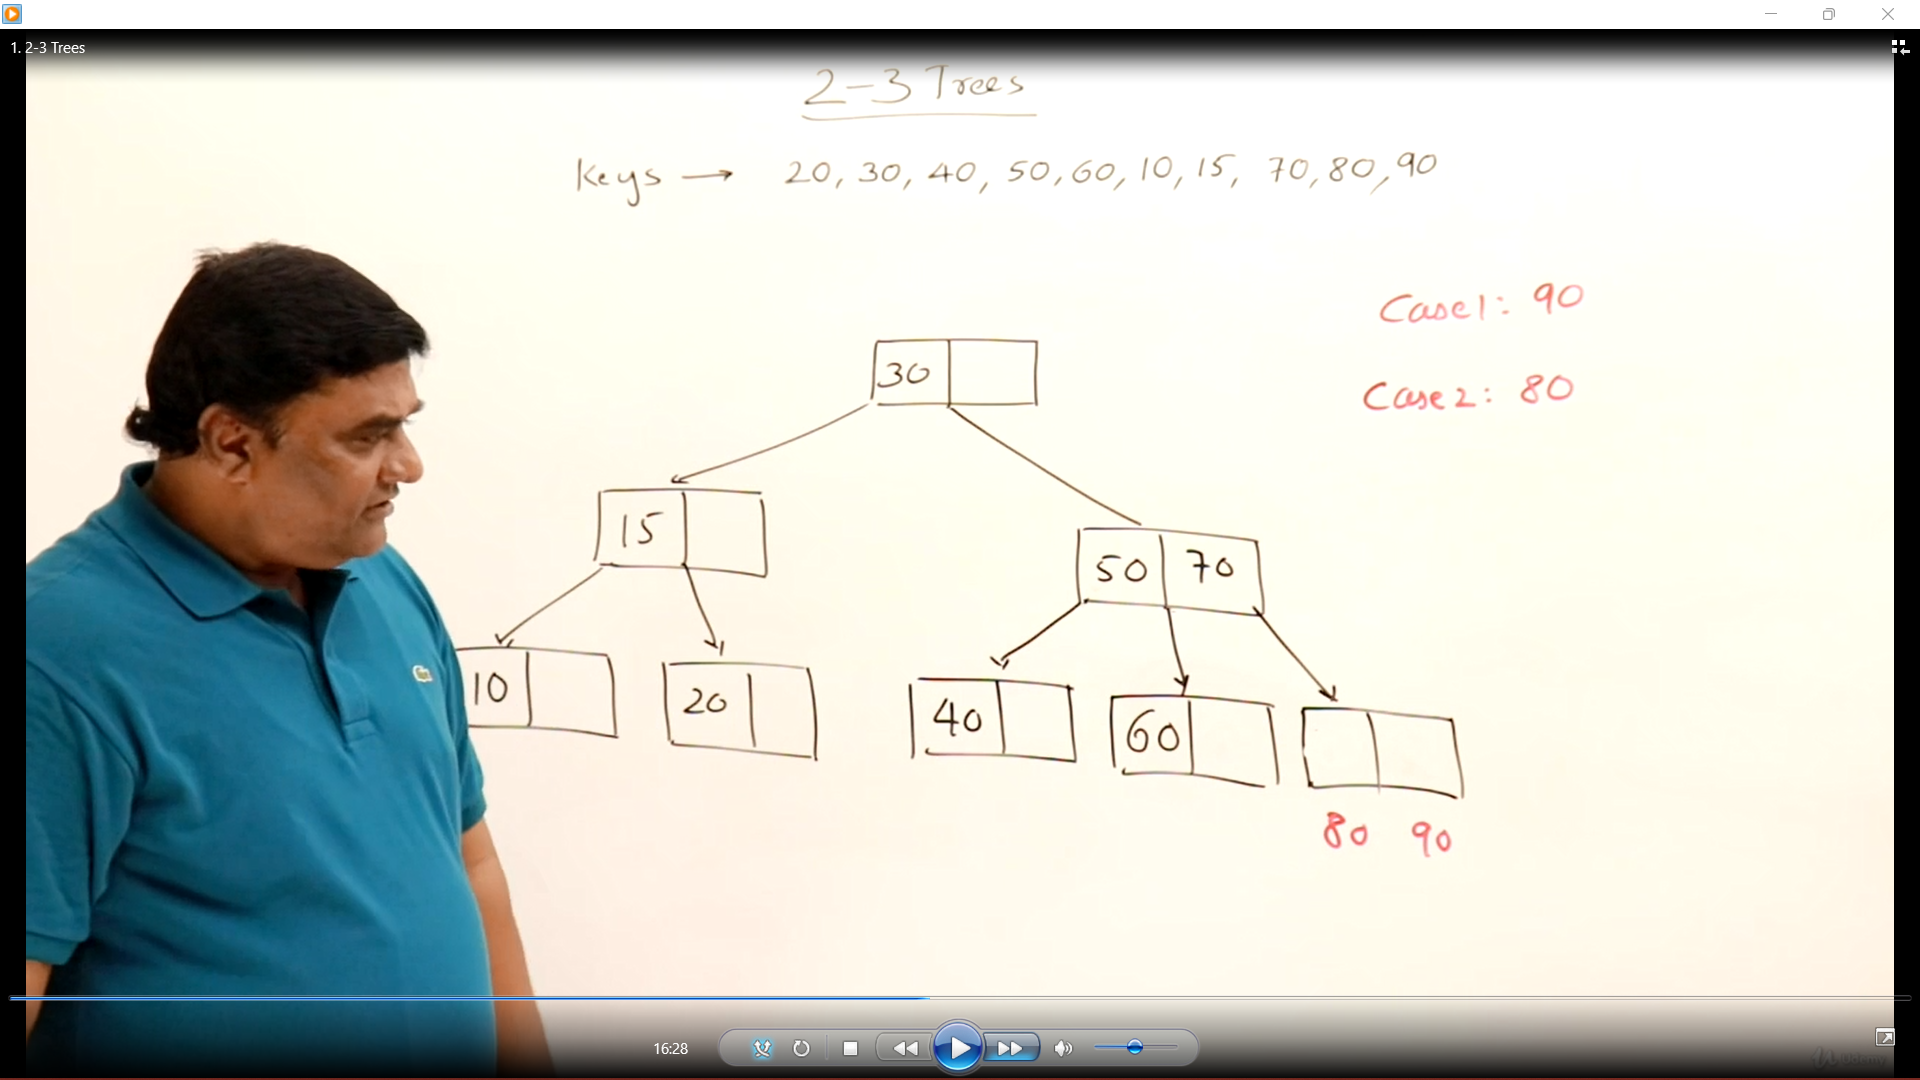 1. 2-3 Trees
2-3 Trees
Keys → 20, 30, 40, 50, 60, 10, 15, 70, 80, 90
Case1: 90
Case2: 80
30
15
50 70
10
20
40
60
80 90
16:28
Udemy